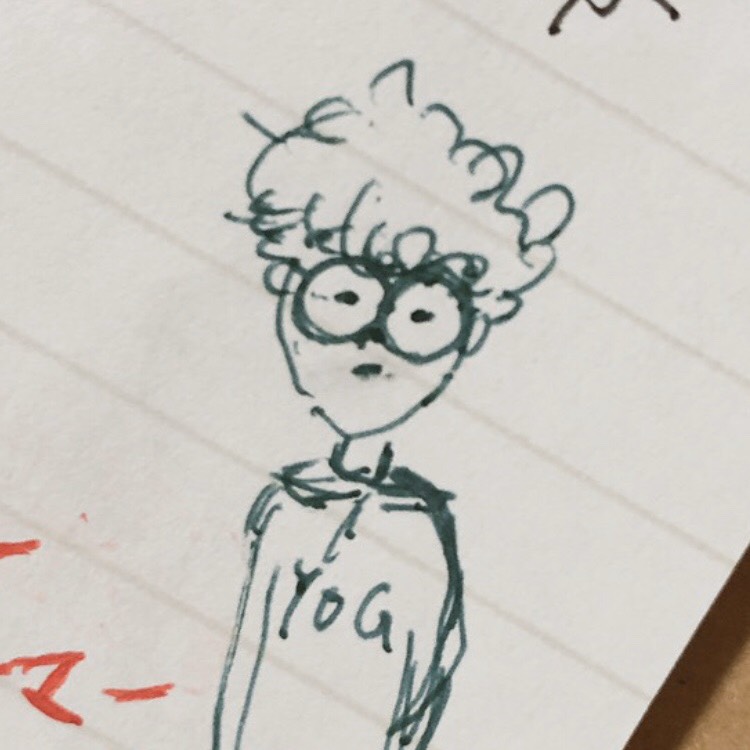 YOG
マー